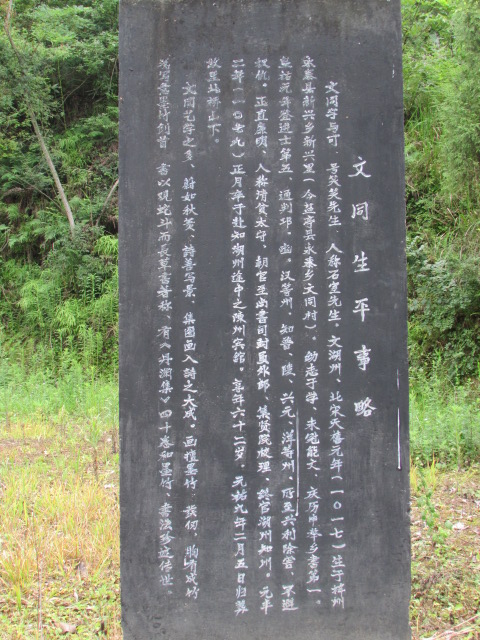 文同生平事略
文同字与可 号笑笑先生 人称石室先生、文湖州、北宋天禧元年(一〇一七)生于梓州
永泰县新兴乡新兴里(今盐亭县永泰乡文同村)。幼志于学、未冠能文、庆历中举乡书第一。
皇祐元年登进士第五、通判邛、汉等州 知普、陵、兴元、洋等州、所至兴利除害、不避
权仇。正直廉明、人称清贫太守、朝官至尚书司封员外郎、集贤院校理、终官湖州知州。元丰
二年(一〇七九)正月卒于赴知湖州途中之陈州宾馆。享年六十二岁。元祐九年二月五日归葬
故里
文同艺学之多、蔚如秋荚、诗善写景、集图画入诗之大成。画擅墨竹 胸有成竹
为写意墨竹创首 书以观蛇斗而长草书著称、有《丹渊集》四十卷和墨竹、书法珍迹传世。